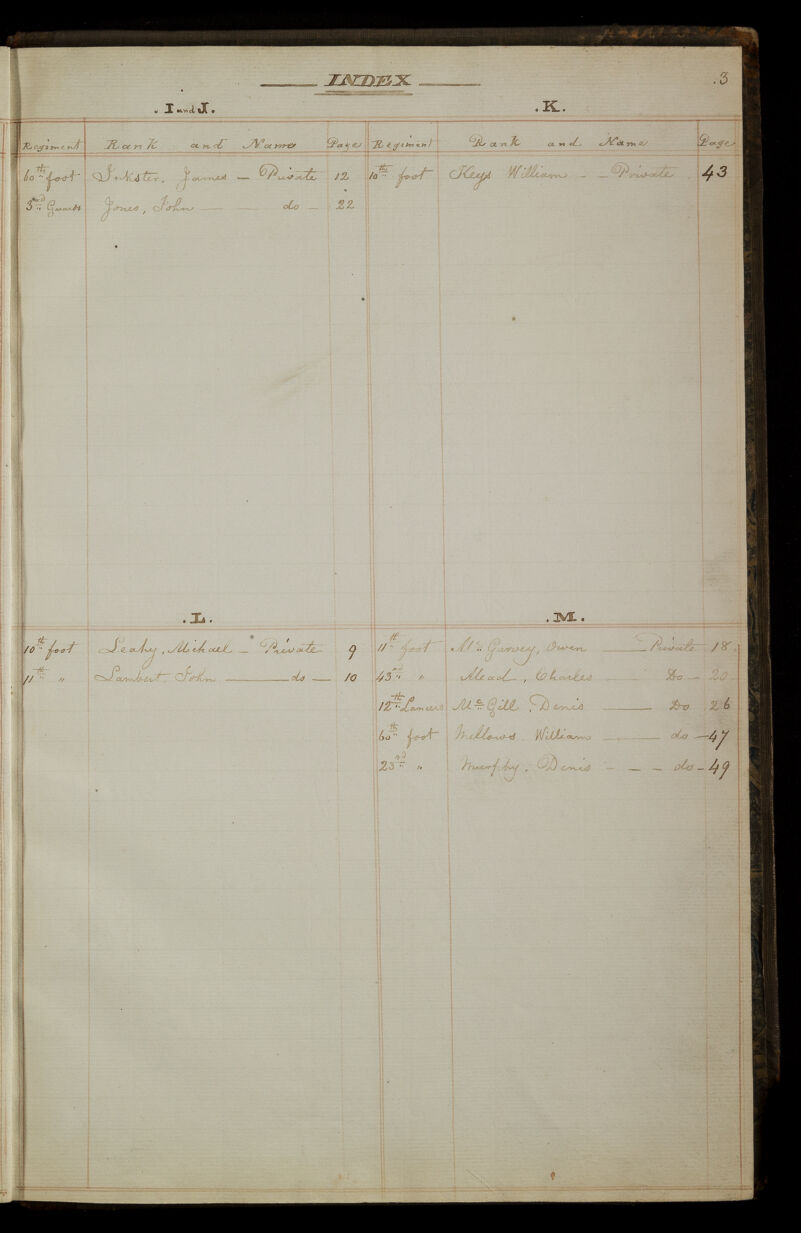 INDEX
.3
. I and J .
Regiment Rank and Name Page
60th foot Inkster, James — Private 12
3rd Guards Jones, John — do — 22
. K .
Regiment Rank and Name Page
10th foot Keys William - - Private . 43
. L .
10th foot Leahy, Michael — Private 9
11th " Lambert, John — do — 10
. M .
11th foot McGarvey, Owen — Private 18
43rd " Mead, Charles — Do — 20
12th Lancers McGill, Denis — Do 26
60th foot Mellows William — do — 47
23rd " Murphy, Denis — — — do — 49